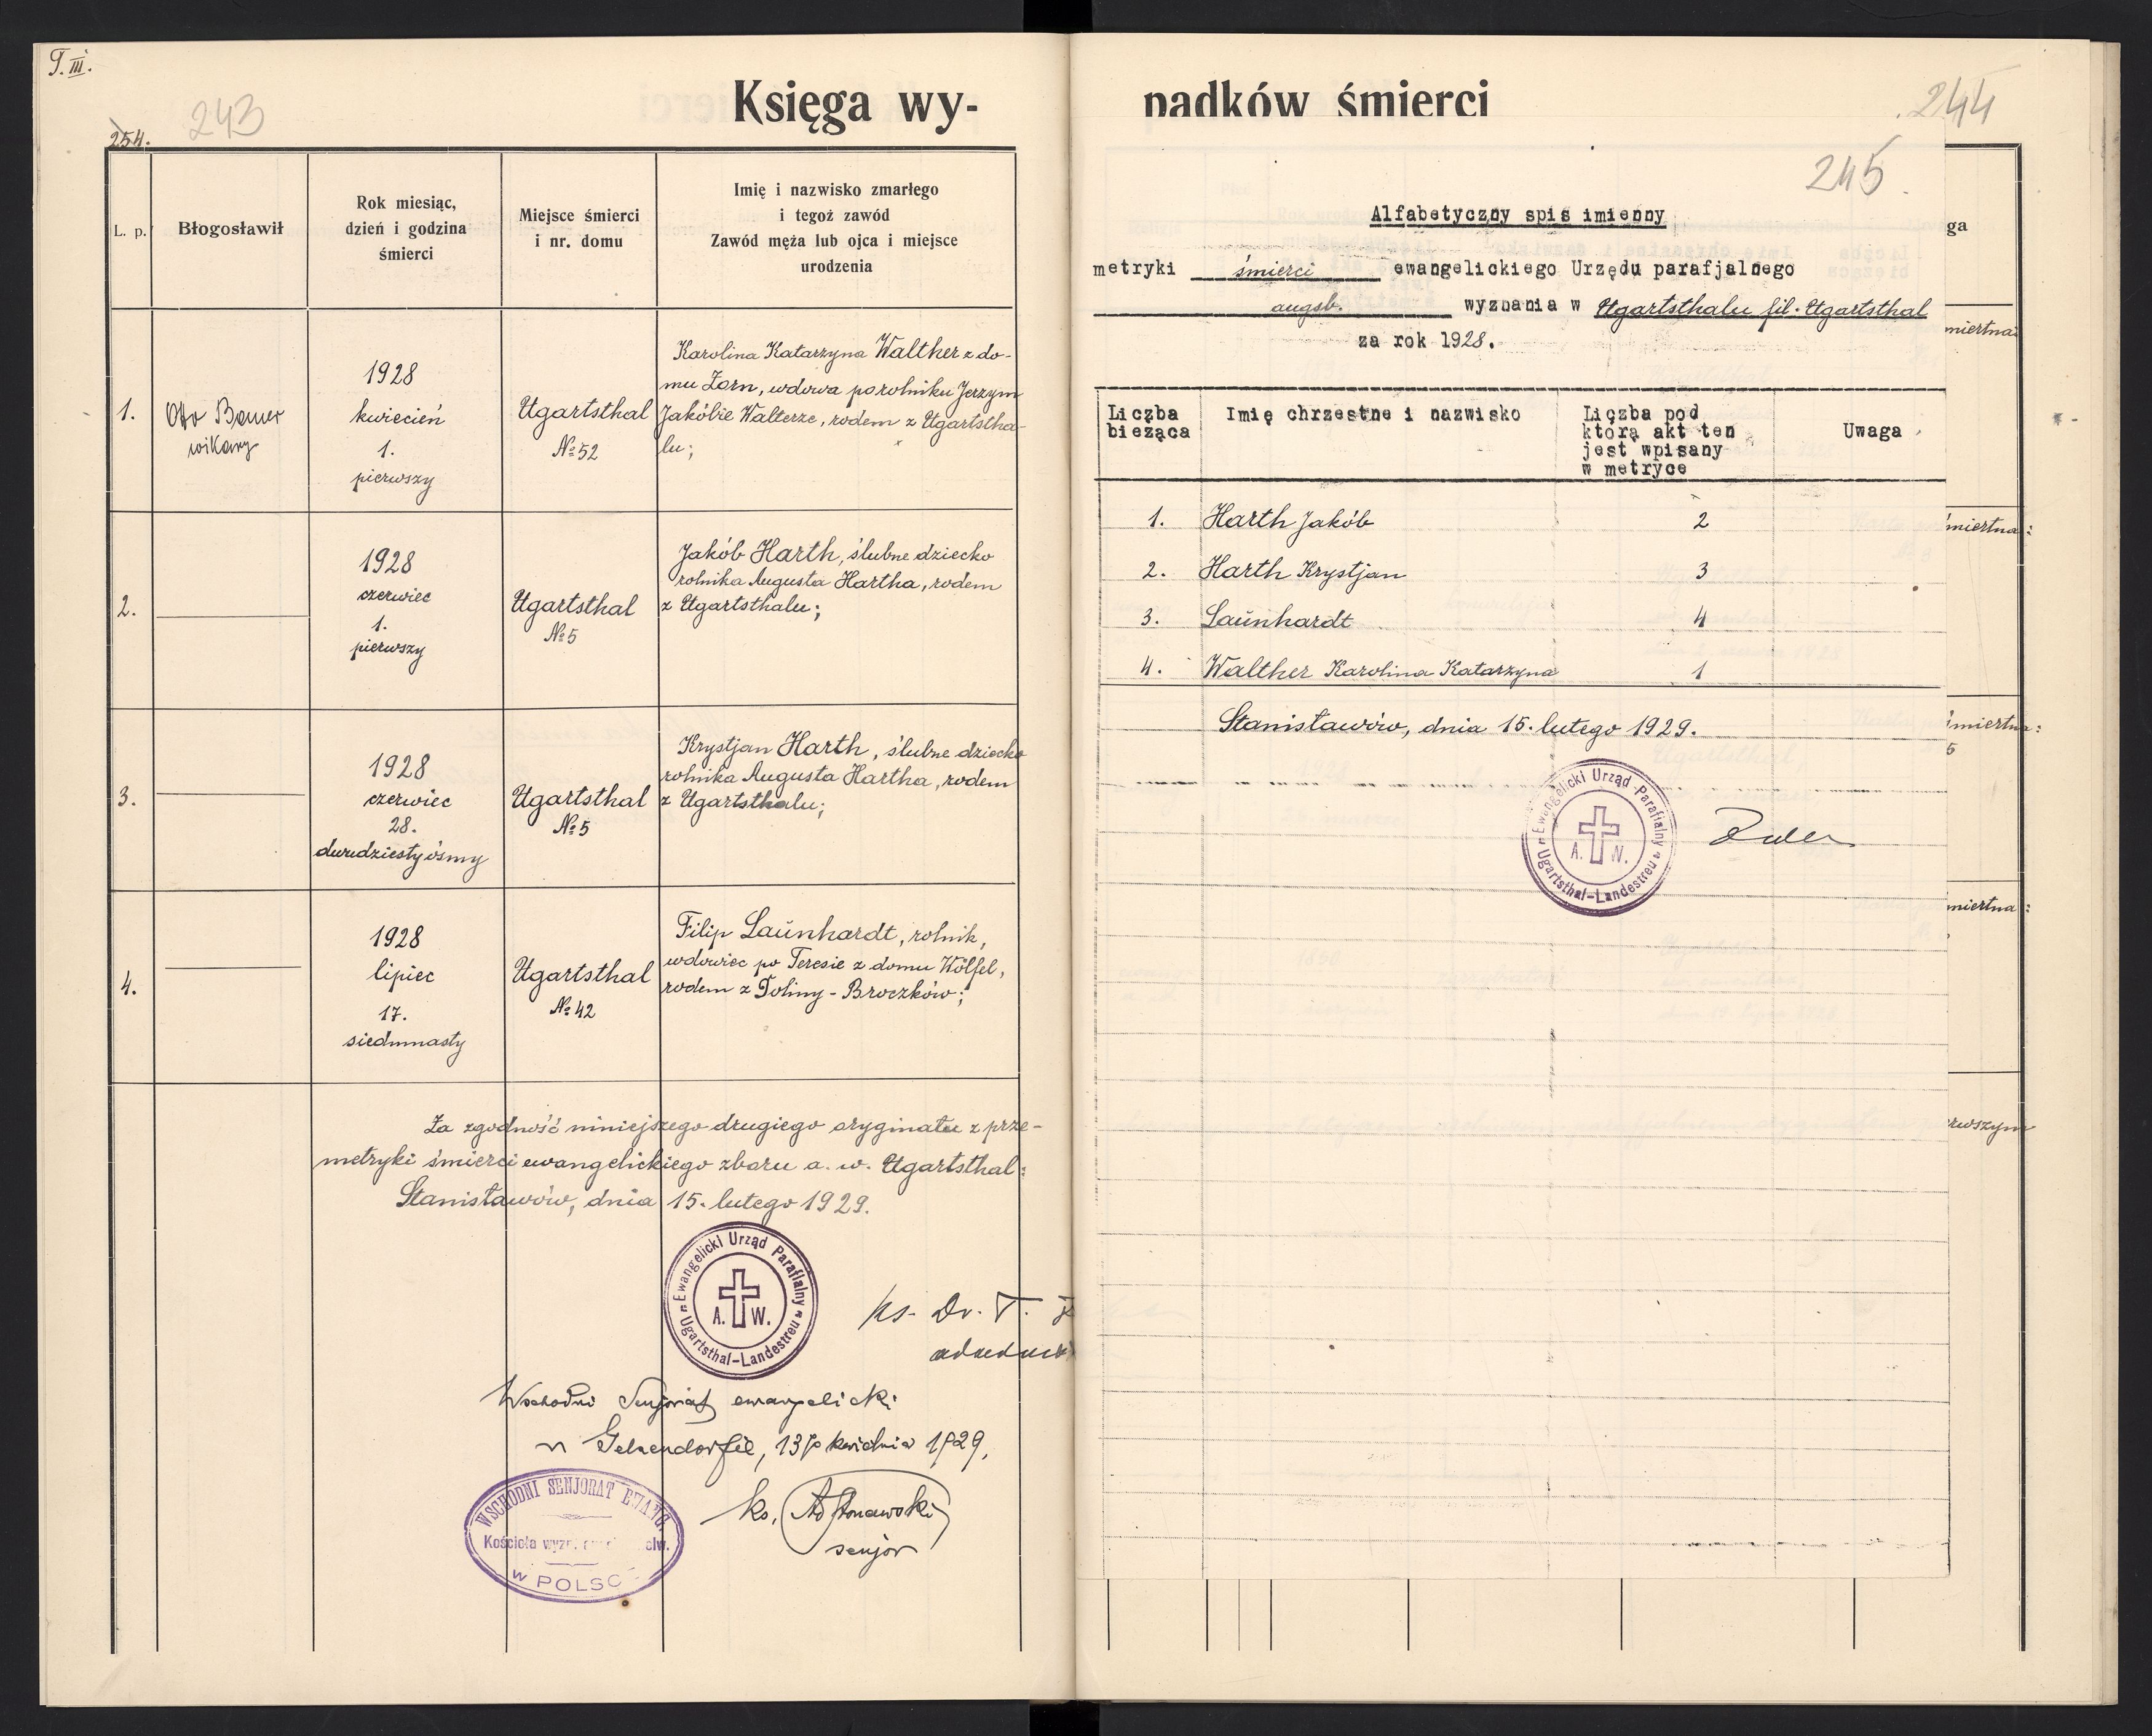 T. III.
243
254.
Księga wy-
L. p.
Błogosławił
Rok miesiąc,
dzień i godzina
śmierci
Miejsce śmierci
i nr. domu
Imię i nazwisko zmarłego
i tegoż zawód
Zawód męża lub ojca i miejsce
urodzenia
1.
Otto Bauer
wikary
1928
kwiecień
1.
pierwszy
Ugartsthal
№ 52
Karolina Katarzyna Walther z do-
mu Zorn, wdowa po rolniku Jerzym
Jakóbie Walterze, rodem z Ugartstha-
lu;
2.
1928
czerwiec
1.
pierwszy
Ugartsthal
№ 5
Jakób Harth, ślubne dziecko
rolnika Augusta Hartha, rodem
z Ugartsthalu;
3.
1928
czerwiec
28.
dwudziesty ósmy
Ugartsthal
№ 5
Krystjan Harth, ślubne dziecko
rolnika Augusta Hartha, rodem
z Ugartsthalu;
4.
1928
lipiec
17.
siedmnasty
Ugartsthal
№ 42
Filip Launhardt, rolnik,
wdowiec po Teresie z domu Wölfel,
rodem z Doliny - Broczków;
Za zgodność niniejszego drugiego oryginału z prze-
metryki śmierci ewangelickiego zboru a. w. Ugartsthal:
Stanisławów, dnia 15. lutego 1929.
Ewangelicki Urząd Parafialny
A. W.
Ugartsthal-Landestreu
ks. Dr. T.
Wschodni Senjorat ewangelicki
w Gelsendorfie, 13go kwietnia 1929.
WSCHODNI SENJORAT EWANG.
Kościoła wyzn.
w POLSC
ks.
senjor
padków śmierci
244
245.
Alfabetyczny spis imienny
metryki śmierci ewangelickiego Urzędu parafjalnego
augsb. wyznania w Ugartsthalu fil. Ugartsthal
za rok 1928.
Liczba
bieząca
Imię chrzestne i nazwisko
Liczba pod
którą akt ten
jest wpisany
w metryce
Uwaga
1. Harth Jakób 2
2. Harth Krystjan 3
3. Launhardt 4
4. Walther Karolina Katarzyna 1
Stanisławów, dnia 15. lutego 1929.
Ewangelicki Urząd Parafialny
A. W.
Ugartsthal-Landestreu
ga
miertna:
miertna:
miertna:
5
miertna:
rwszym